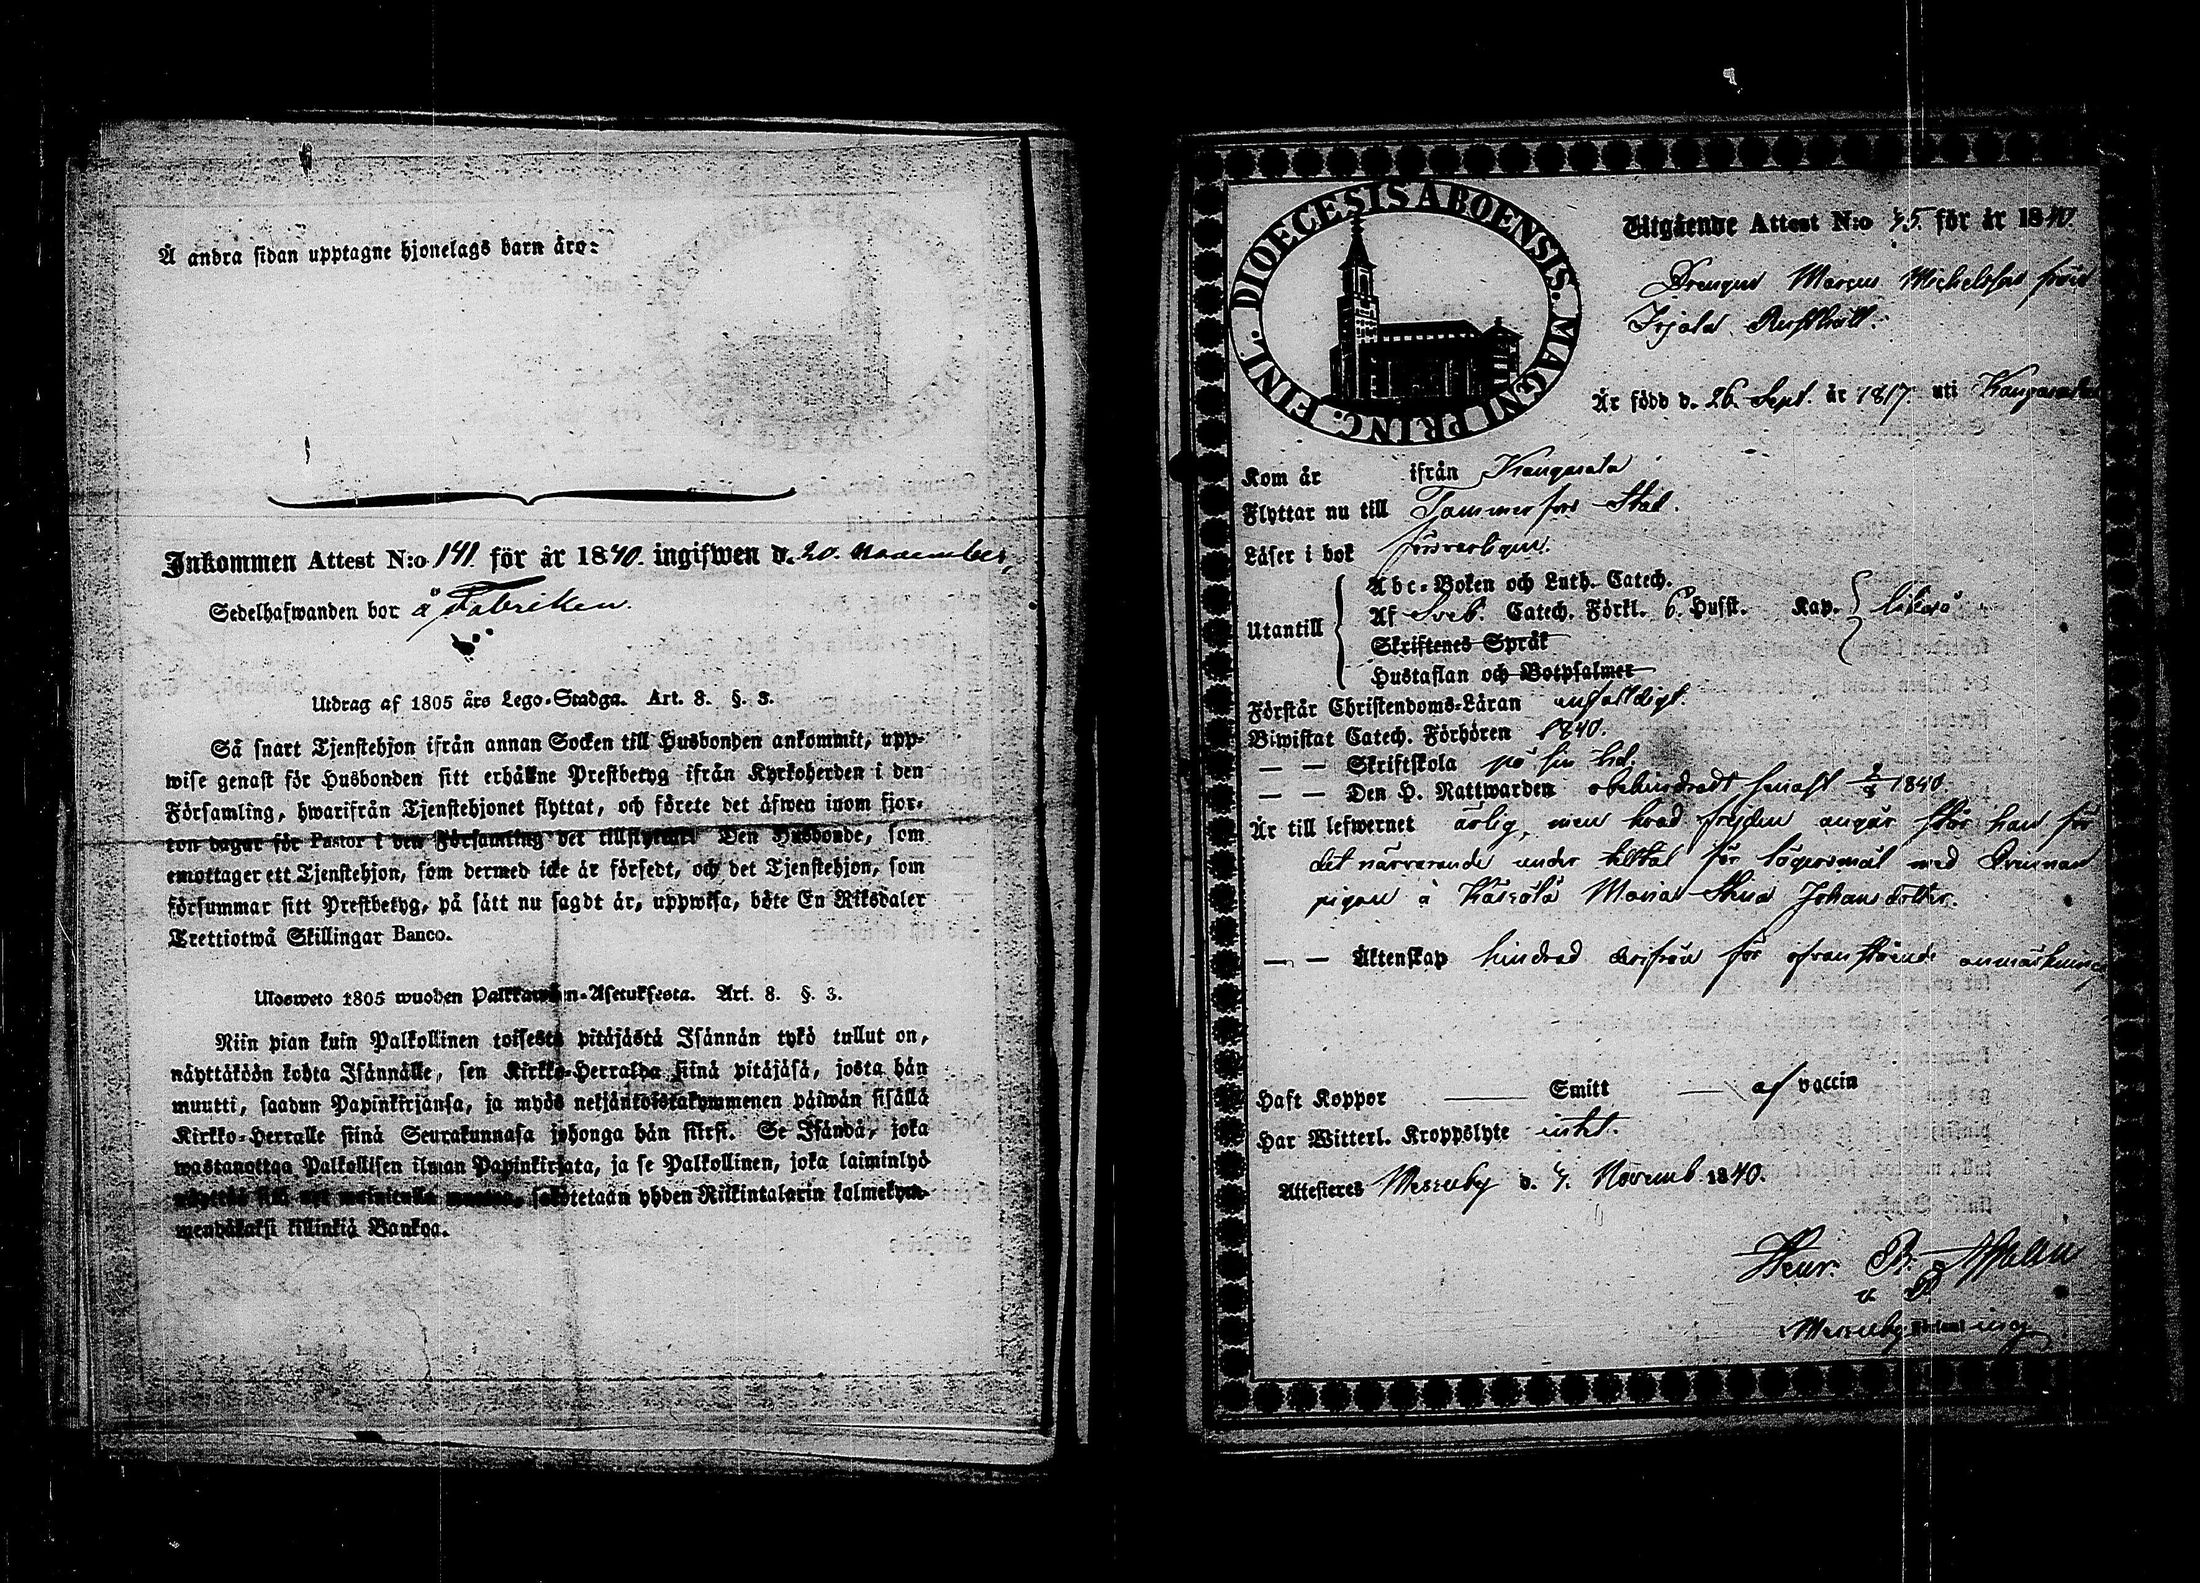 Å andra sidan upptagne hjonelags barn äro:
Inkommen Attest N:o 141. för år 1840. ingifwen d. 20. November,
Sedelhafwanden bor å Fabriken.
Utdrag af 1805 års Lego-Stadga. Art. 8. §. 3.
Så snart Tjenstehjon ifrån annan Socken till Husbonden ankommit, upp-
wise genast för Husbonden sitt erhållne Prestbetyg ifrån Kyrkoherden i den
Församling, hwarifrån Tjenstehjonet flyttat, och förete det äfwen inom fjor-
ton dagar för Pastor i den Församling det tillflyttat. Den Husbonde, som
emottager ett Tjenstehjon, som dermed icke är försedt, och det Tjenstehjon, som
försummar sitt Prestbetyg, på sätt nu sagdt är, uppwisa, böte En Riksdaler
Trettiotwå Skillingar Banco.
Ulosweto 1805 wuoden Palkkawäen-Asetuksesta. Art. 8. §. 3.
Niin pian kuin Palkollinen toisesta pitäjästä Isännän tykö tullut on,
näyttäköön kohta Isännälle, sen Kirkko-Herralda siinä pitäjäsä, josta hän
muutti, saadun Papinkirjansa, ja myös neljäntoistakymmenen päiwän sisällä
Kirkko-Herralle siinä Seurakunnasa johonga hän siirsi. Se Isändä, joka
wastanottaa Palkollisen ilman Papinkirjata, ja se Palkollinen, joka laiminlyö
sakotetaan yhden Riikintalarin kolmekym-
mendäkaksi killinkiä Bankoa.
DIOECESIS ABOENSIS. MAGNI PRINC. FINL.
Utgående Attest N:o 45. för år 1840.
Drengen Marcus Michelsson från
Irjala Rusthåll.
Är född d. 26. Sept. år 1817. uti Kangasala
Kom år ifrån Kangasala
Flyttar nu till Tammerfors Stad.
Läser i bok försvarligen.
Utantill
Abc-Boken och Luth. Catech.
Af Sveb. Catech. Förkl. 6. Hufst. Kap. likaså
Skriftenes Språk
Hustaflan och Botpsalmer
Förstår Christendoms-Läran enfaldigt.
Biwistat Catech. Förhören 1840.
— — Skriftskola på sin tid.
— — Den H. Nattwarden obehindradt senast 1840.
Är till lefwernet ärlig, men hvad frejden angår står han för
det närvarande under tilltal för lägersmål med
pigan å Maria Stina Johansdotter.
— — Äktenskap hindrad derifrån för ofvanstående anmärkning
Haft Koppor — Smitt — af vaccin
Har Witterl. Kroppslyte intet.
Attesteres Messuby d. 4. Novemb. 1840.
Henr. B.
Messuby